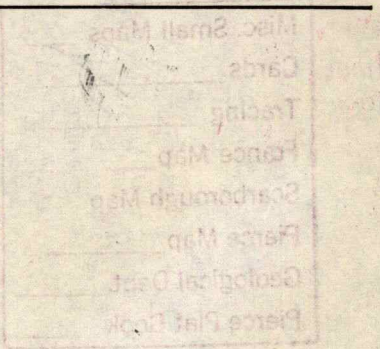 Misc. Small Maps
Cards
Tracing
France Map
Scarborough Map
Pierce Map
Geological Dept.
Pierce Plat Book